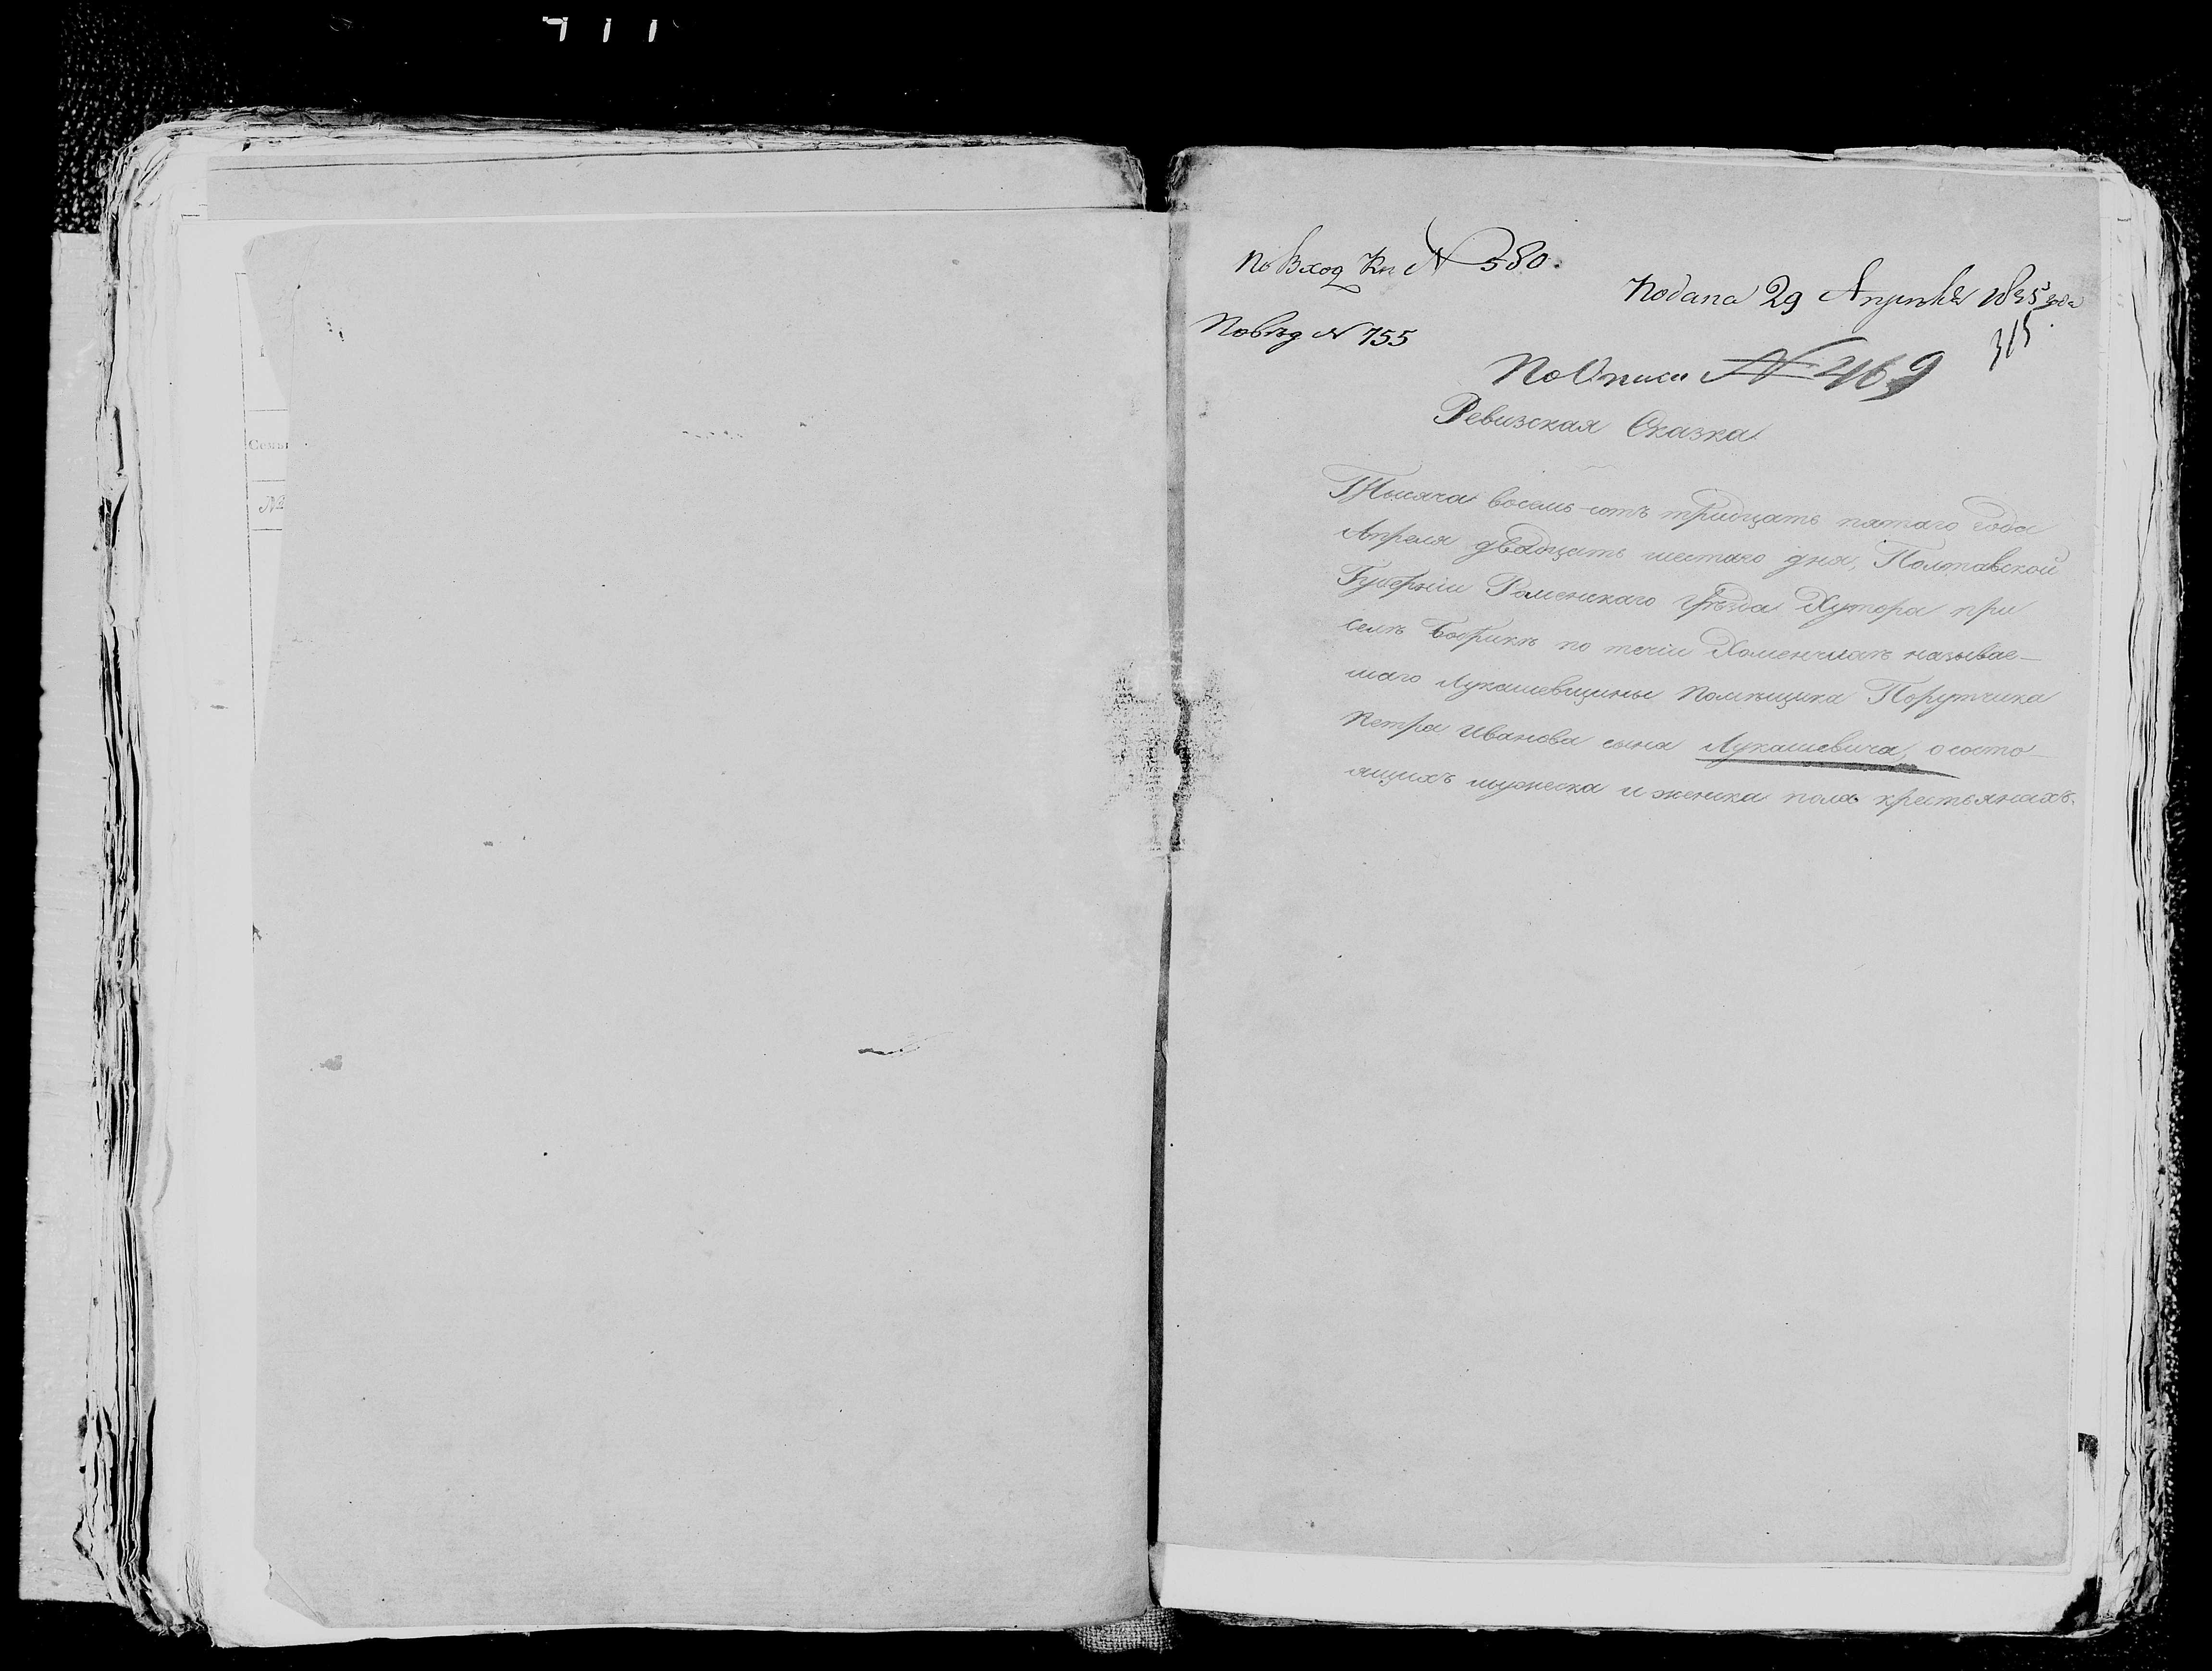 Семьи
№
По Вход Кн № 580.
Подана 29 Апреля 1835 года
315
По вѣд № 755
По Описи № 469
Ревизская Сказка
Тысяча восемь сотъ тридцать пятаго года
Апреля двадцать шестаго дня, Полтавской
Губерніи Роменскаго Уѣзда Хутора при
селѣ Бобрикѣ по течіи называе-
маго Лукашевщины Помѣщика Порутчика
Петра Иванова сына Лукашевича, о состо-
ящихъ мужеска и женска пола крестьянахъ.